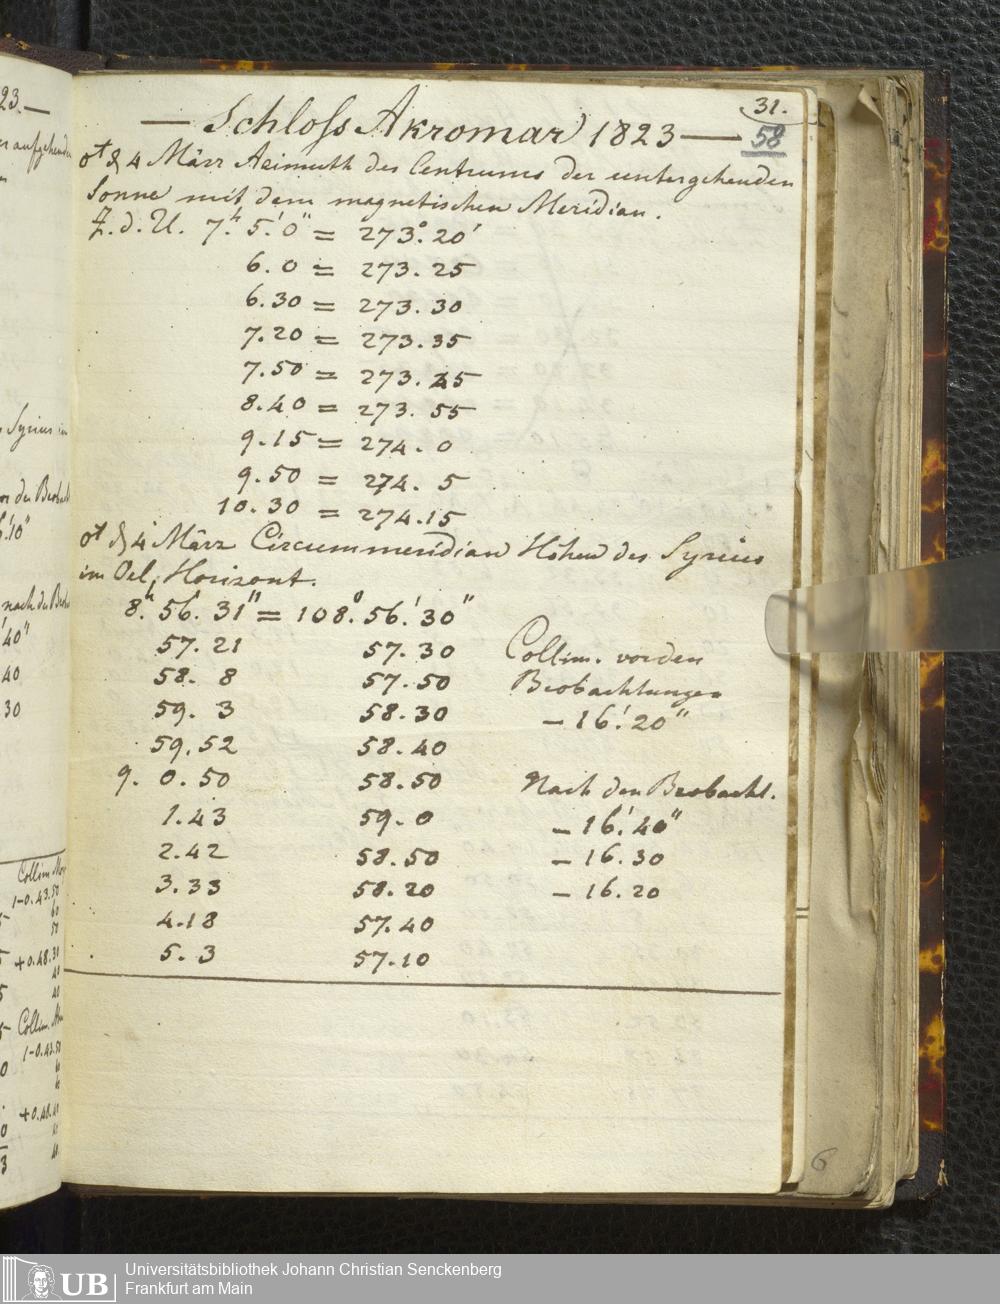 31.
— Schloss Akromar 1823 —
58
4 März Azimuth des Centrums der untergehenden
Sonne mit dem magnetischen Meridian.
Z. d. U. 7h. 5.' 0" = 273.° 20'
6. 0 = 273. 25
6. 30 = 273. 30
7. 20 = 273. 35
7. 50 = 273. 45
8. 40 = 273. 55
9. 15 = 274. 0
9. 50 = 274. 5
10. 30 = 274. 15
4 März Circummeridian Höhen des Syrius
im Oel, Horizont.
8.h 56.' 31" = 108.° 56.' 30"
57. 21 57. 30 Collim. vor den
58. 8 57. 50 Beobachtungen
59. 3 58. 30 – 16.' 20"
59. 52 58. 40
9. 0. 50 58. 50 Nach den Beobacht.
1. 43 59. 0 – 16.' 40"
2. 42 58. 50 – 16. 30
3. 33 58. 20 – 16. 20
4. 18 57. 40
5. 3 57. 10
6
23 —
aufgehenden
Syrius
40"
40
30
Collim.
1–0.43.50
60
50
+0.48.30
40
Collim.
1–0.43.50
UB
Universitätsbibliothek Johann Christian Senckenberg
Frankfurt am Main